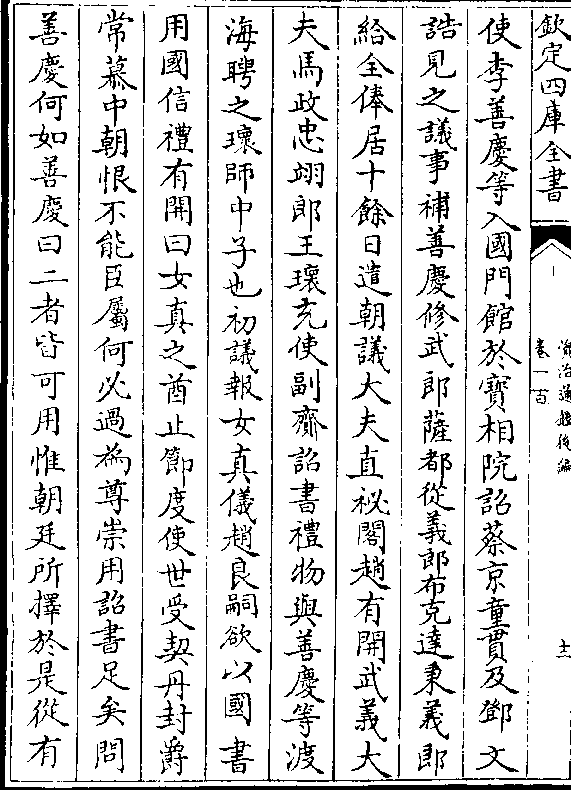 欽定四庫全書
資治通鑑後編
卷一百
十二
使李善慶等入國門館於寶相院詔蔡京童貫及鄧文
誥見之議事補善慶修武郎薩都從義郎布克達秉義郎
給全俸居十餘日遣朝議大夫直祕閣趙有開武義大
夫馬政忠翊郎王瓌充使副齎詔書禮物與善慶等渡
海聘之瓌師中子也初議報女真儀趙良嗣欲以國書
用國信禮有開曰女真之酋止節度使世受契丹封爵
常慕中朝恨不能臣屬何必過為尊崇用詔書足矣問
善慶何如善慶曰二者皆可用惟朝廷所擇於是從有